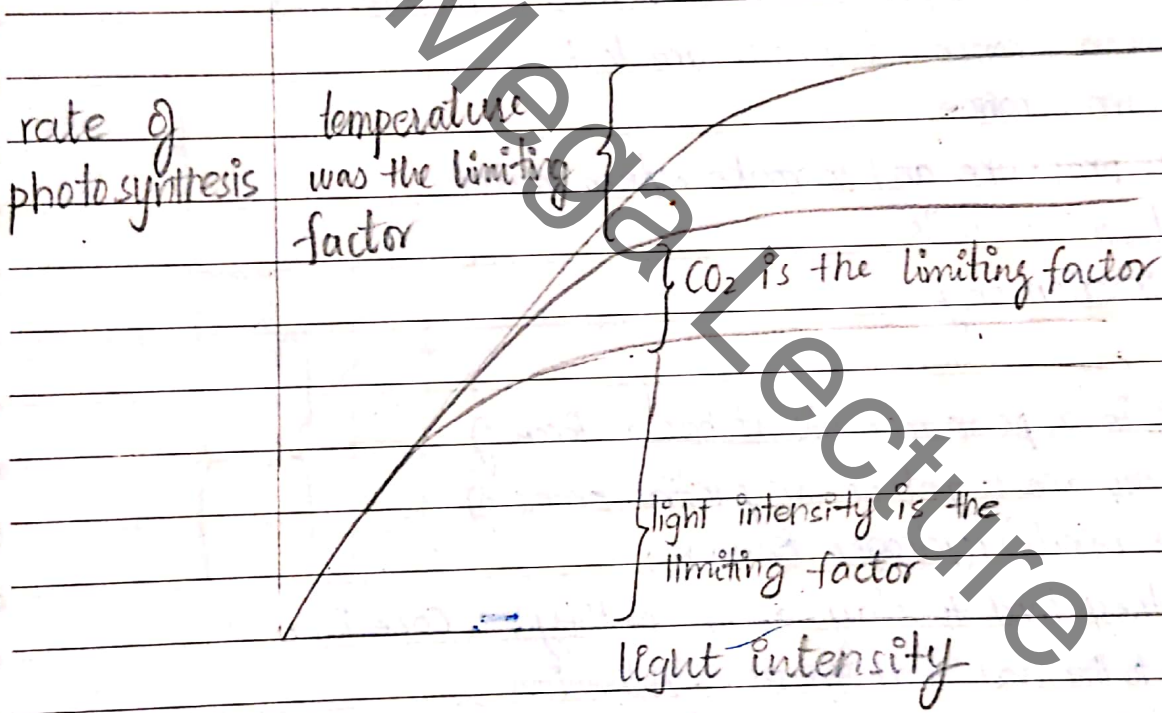 rate of
photosynthesis
temperature
was the limiting
factor
CO₂ is the limiting factor
light intensity is the
limiting factor
light intensity
Mega Lecture